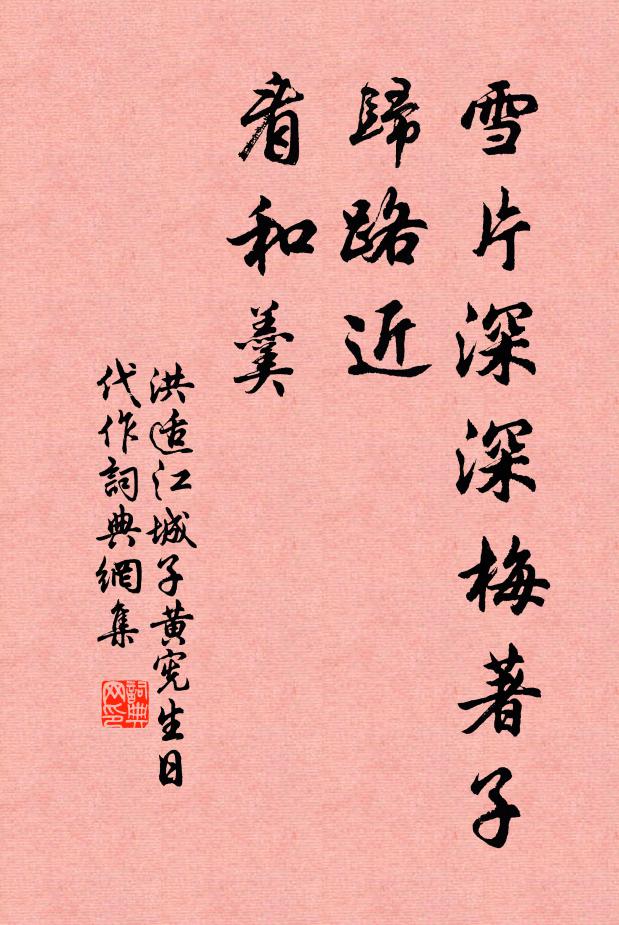 雪片深深梅著子
歸路近
看和羹
洪适江城子黃宪生日
代作詞典網集
詞典网印